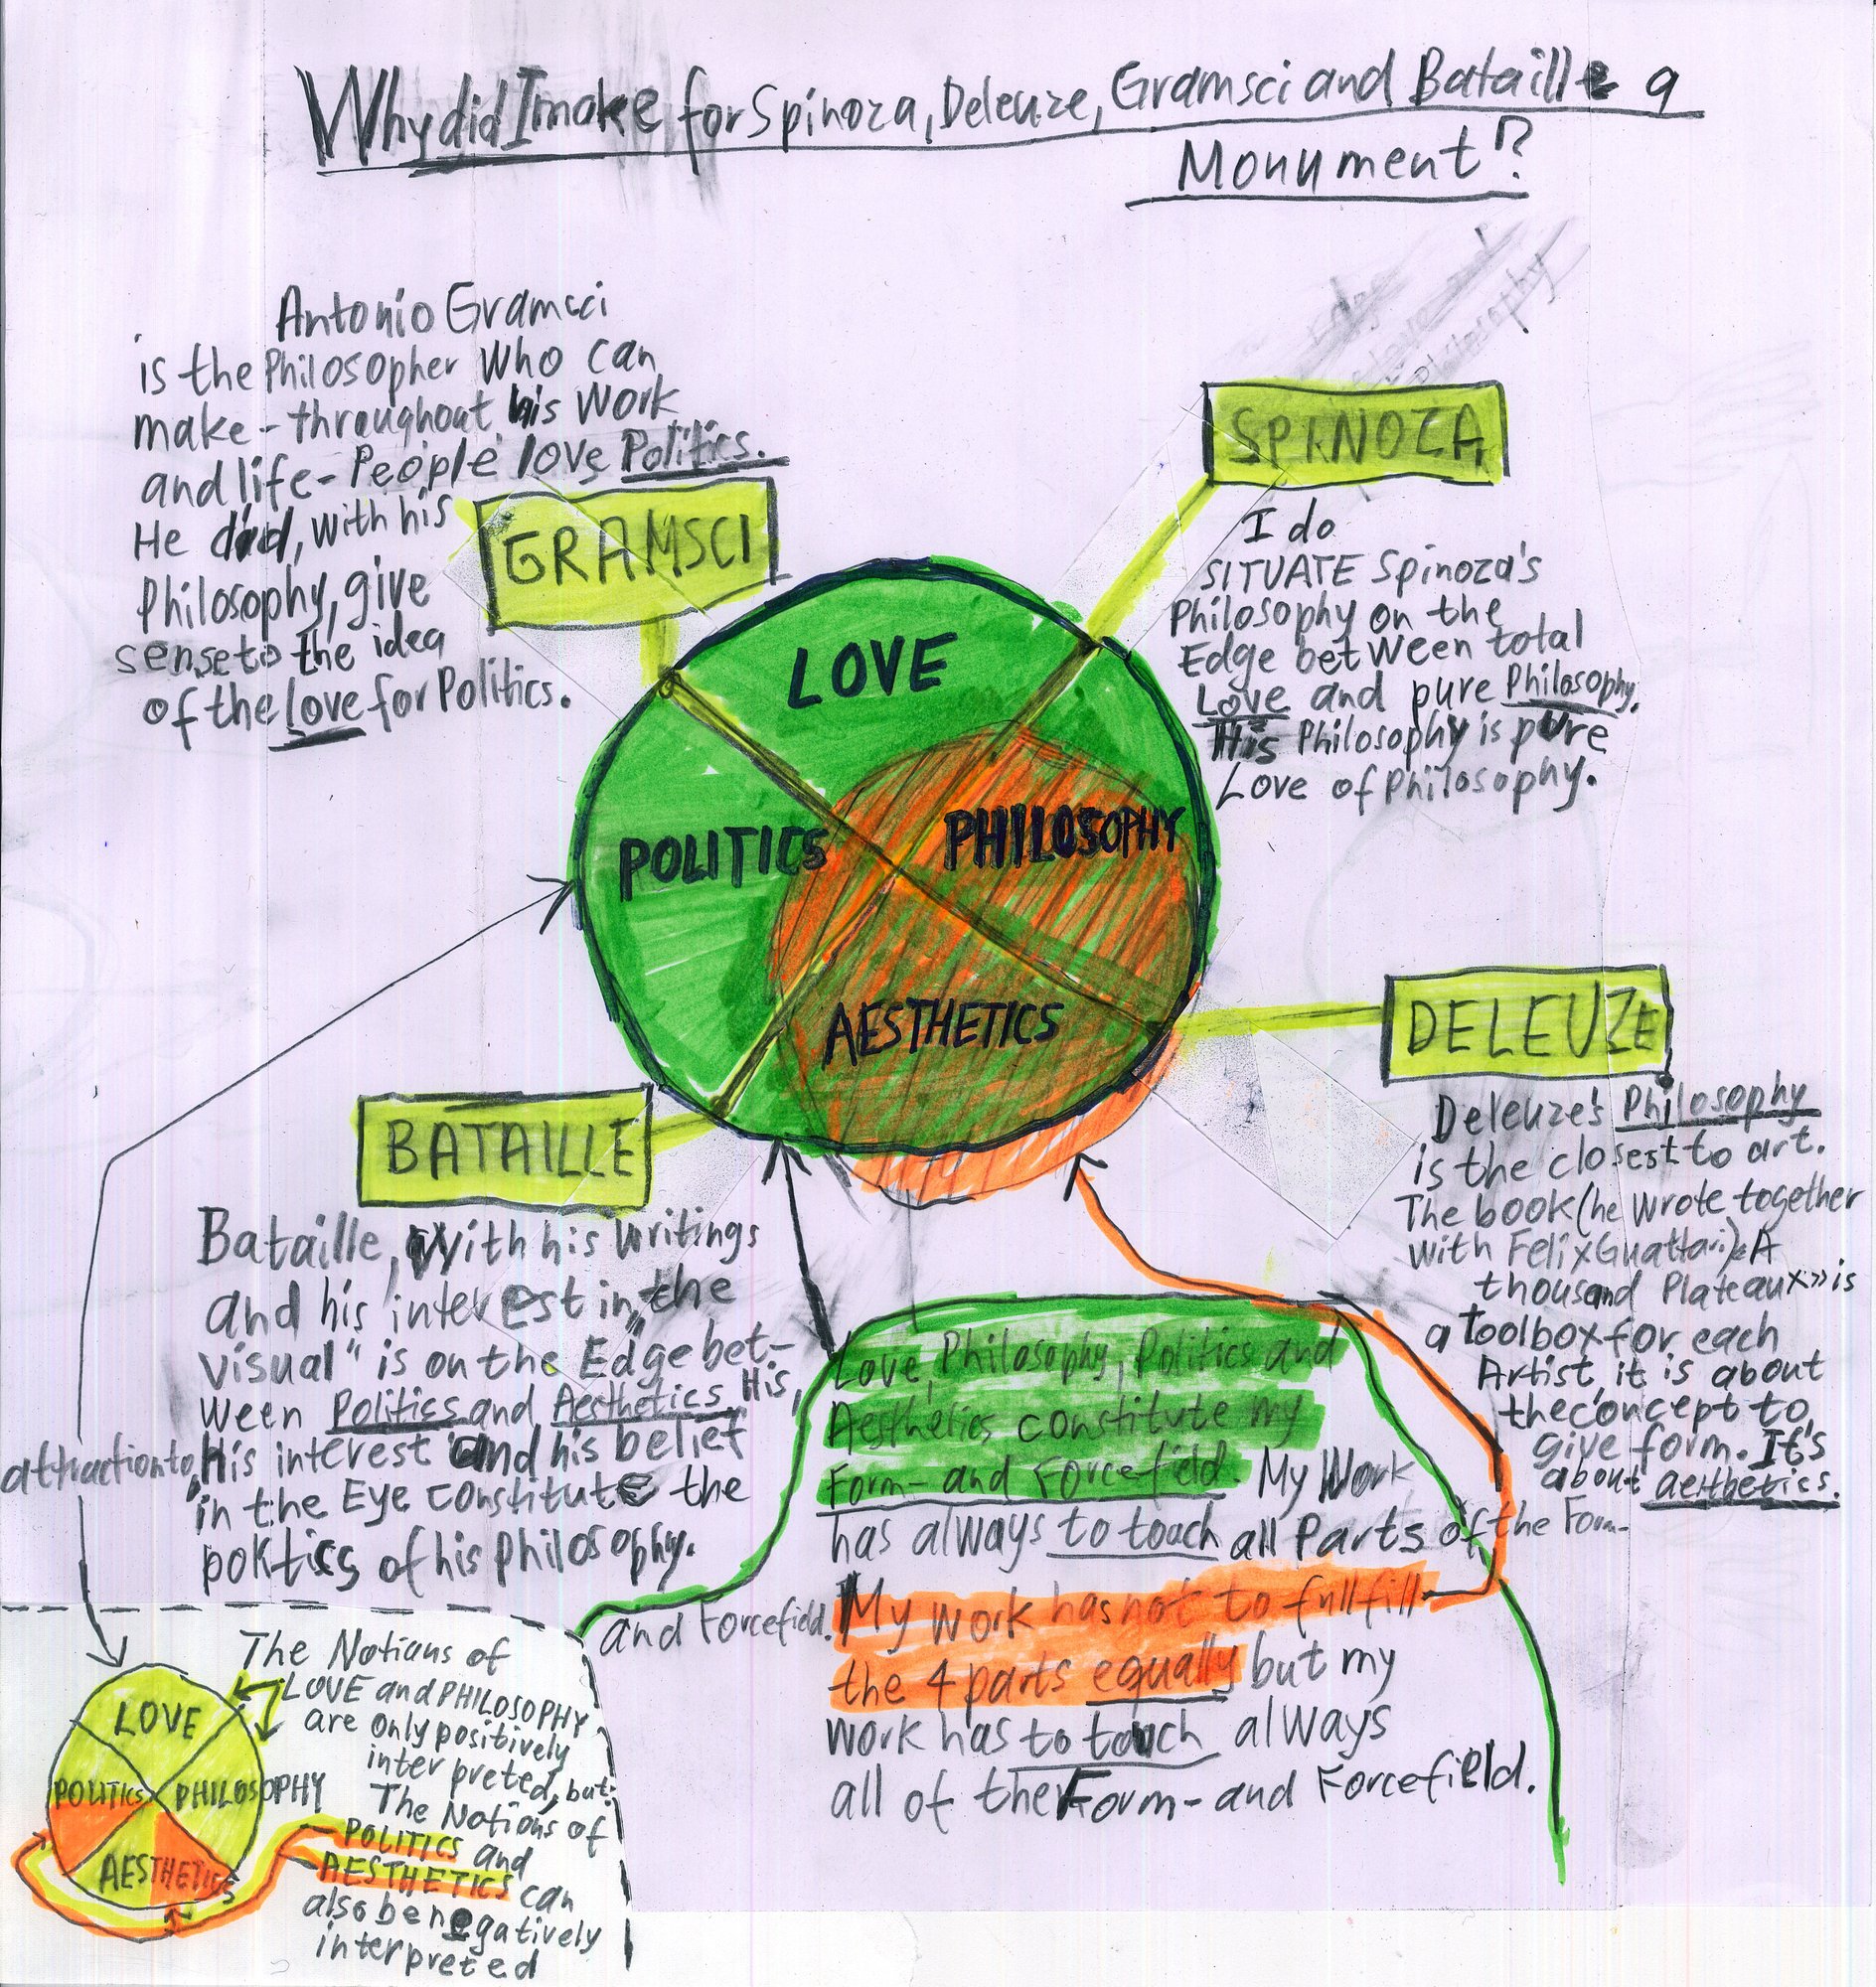 Why did I make for Spinoza, Deleuze, Gramsci and Bataille a
Monument?
Antonio Gramsci
is the Philosopher Who can
make - throughout his Work
and life - People love Politics.
He did, with his
Philosophy, give
sense to the idea
of the Love for Politics.
GRAMSCI
SPINOZA
I do
SITUATE Spinoza's
Philosophy on the
Edge between total
Love and pure Philosophy.
His Philosophy is pure
Love of Philosophy.
LOVE
POLITICS
PHILOSOPHY
AESTHETICS
DELEUZE
Deleuze's Philosophy
is the closest to art.
The book (he wrote together
with Felix Guattari) «A
thousand Plateaux» is
a Toolbox for each
Artist, it is about
the concept to
give form. It's
about aesthetics.
BATAILLE
Bataille, With his Writings
and his interest in "the
visual" is on the Edge bet-
ween Politics and Aesthetics. His,
attraction to, his interest and his belief
in the Eye constitute the
politics of his Philosophy.
Love, Philosophy, Politics and
Aesthetics constitute my
Form- and Forcefield. My Work
has always to touch all Parts of the Form-
and Forcefield. My work has not to fullfill
the 4 parts equally but my
work has to touch always
all of the Form- and Forcefield.
LOVE
POLITICS
PHILOSOPHY
AESTHETICS
The Notions of
LOVE and PHILOSOPHY
are only positively
interpreted, but:
The Notions of
POLITICS and
AESTHETICS can
also be negatively
interpreted